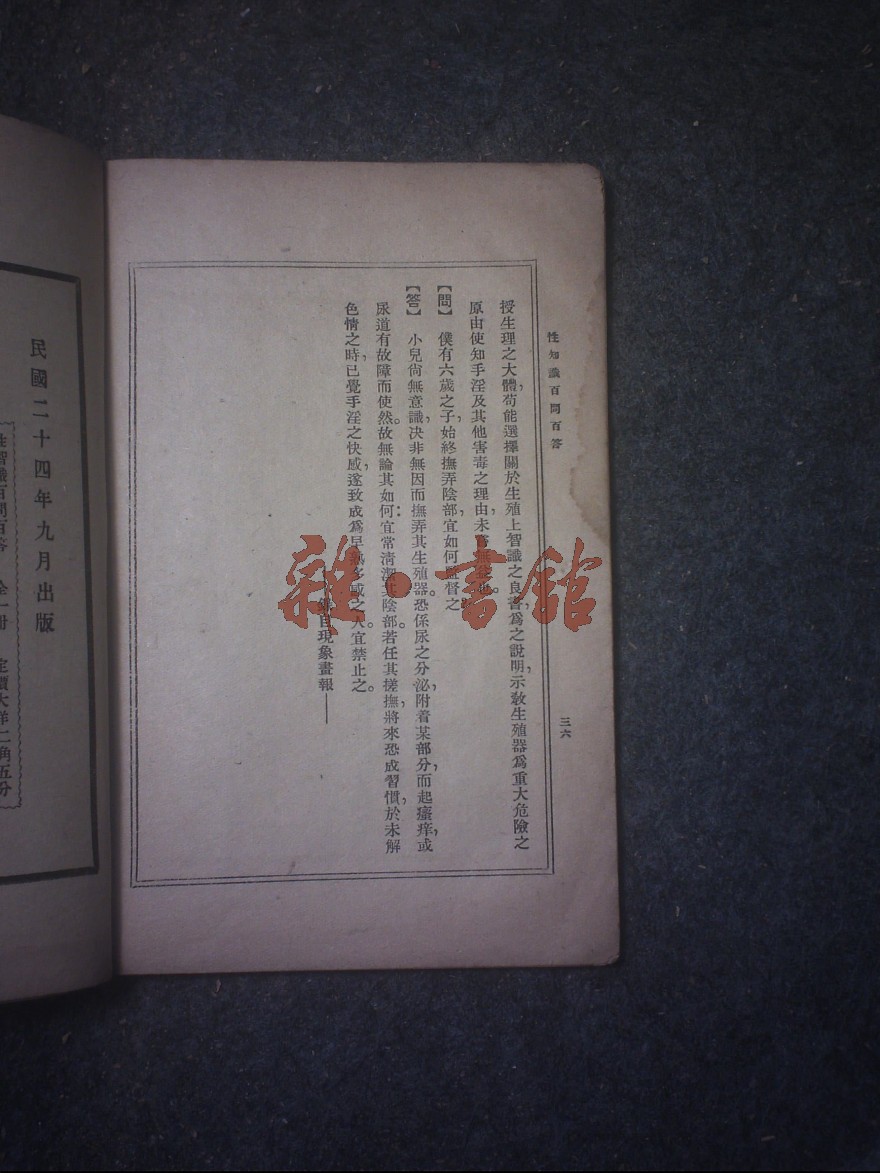 性知識百問百答
三六
授生理之大體,苟能選擇關於生殖上智識之良書,爲之說明,示敎生殖器爲重大危險之
原由使知手淫及其他害毒之理由,未嘗無
【問】 僕有六歲之子,始終撫弄陰部,宜如何監督之
【答】 小兒尙無意識,决非無因而撫弄其生殖器。恐係尿之分泌,附着某部分,而起癢痒,或
尿道有故障而使然。故無論其如何:宜常淸潔其陰部。若任其搓撫,將來恐成習慣,於未解
色情之時,已覺手淫之快感,遂致成爲早熟多感之人宜禁止之。
錄自現象畫報——
民國二十四年九月出版
性智識百問百答 全一册 定價大洋二角五分
雜·書館